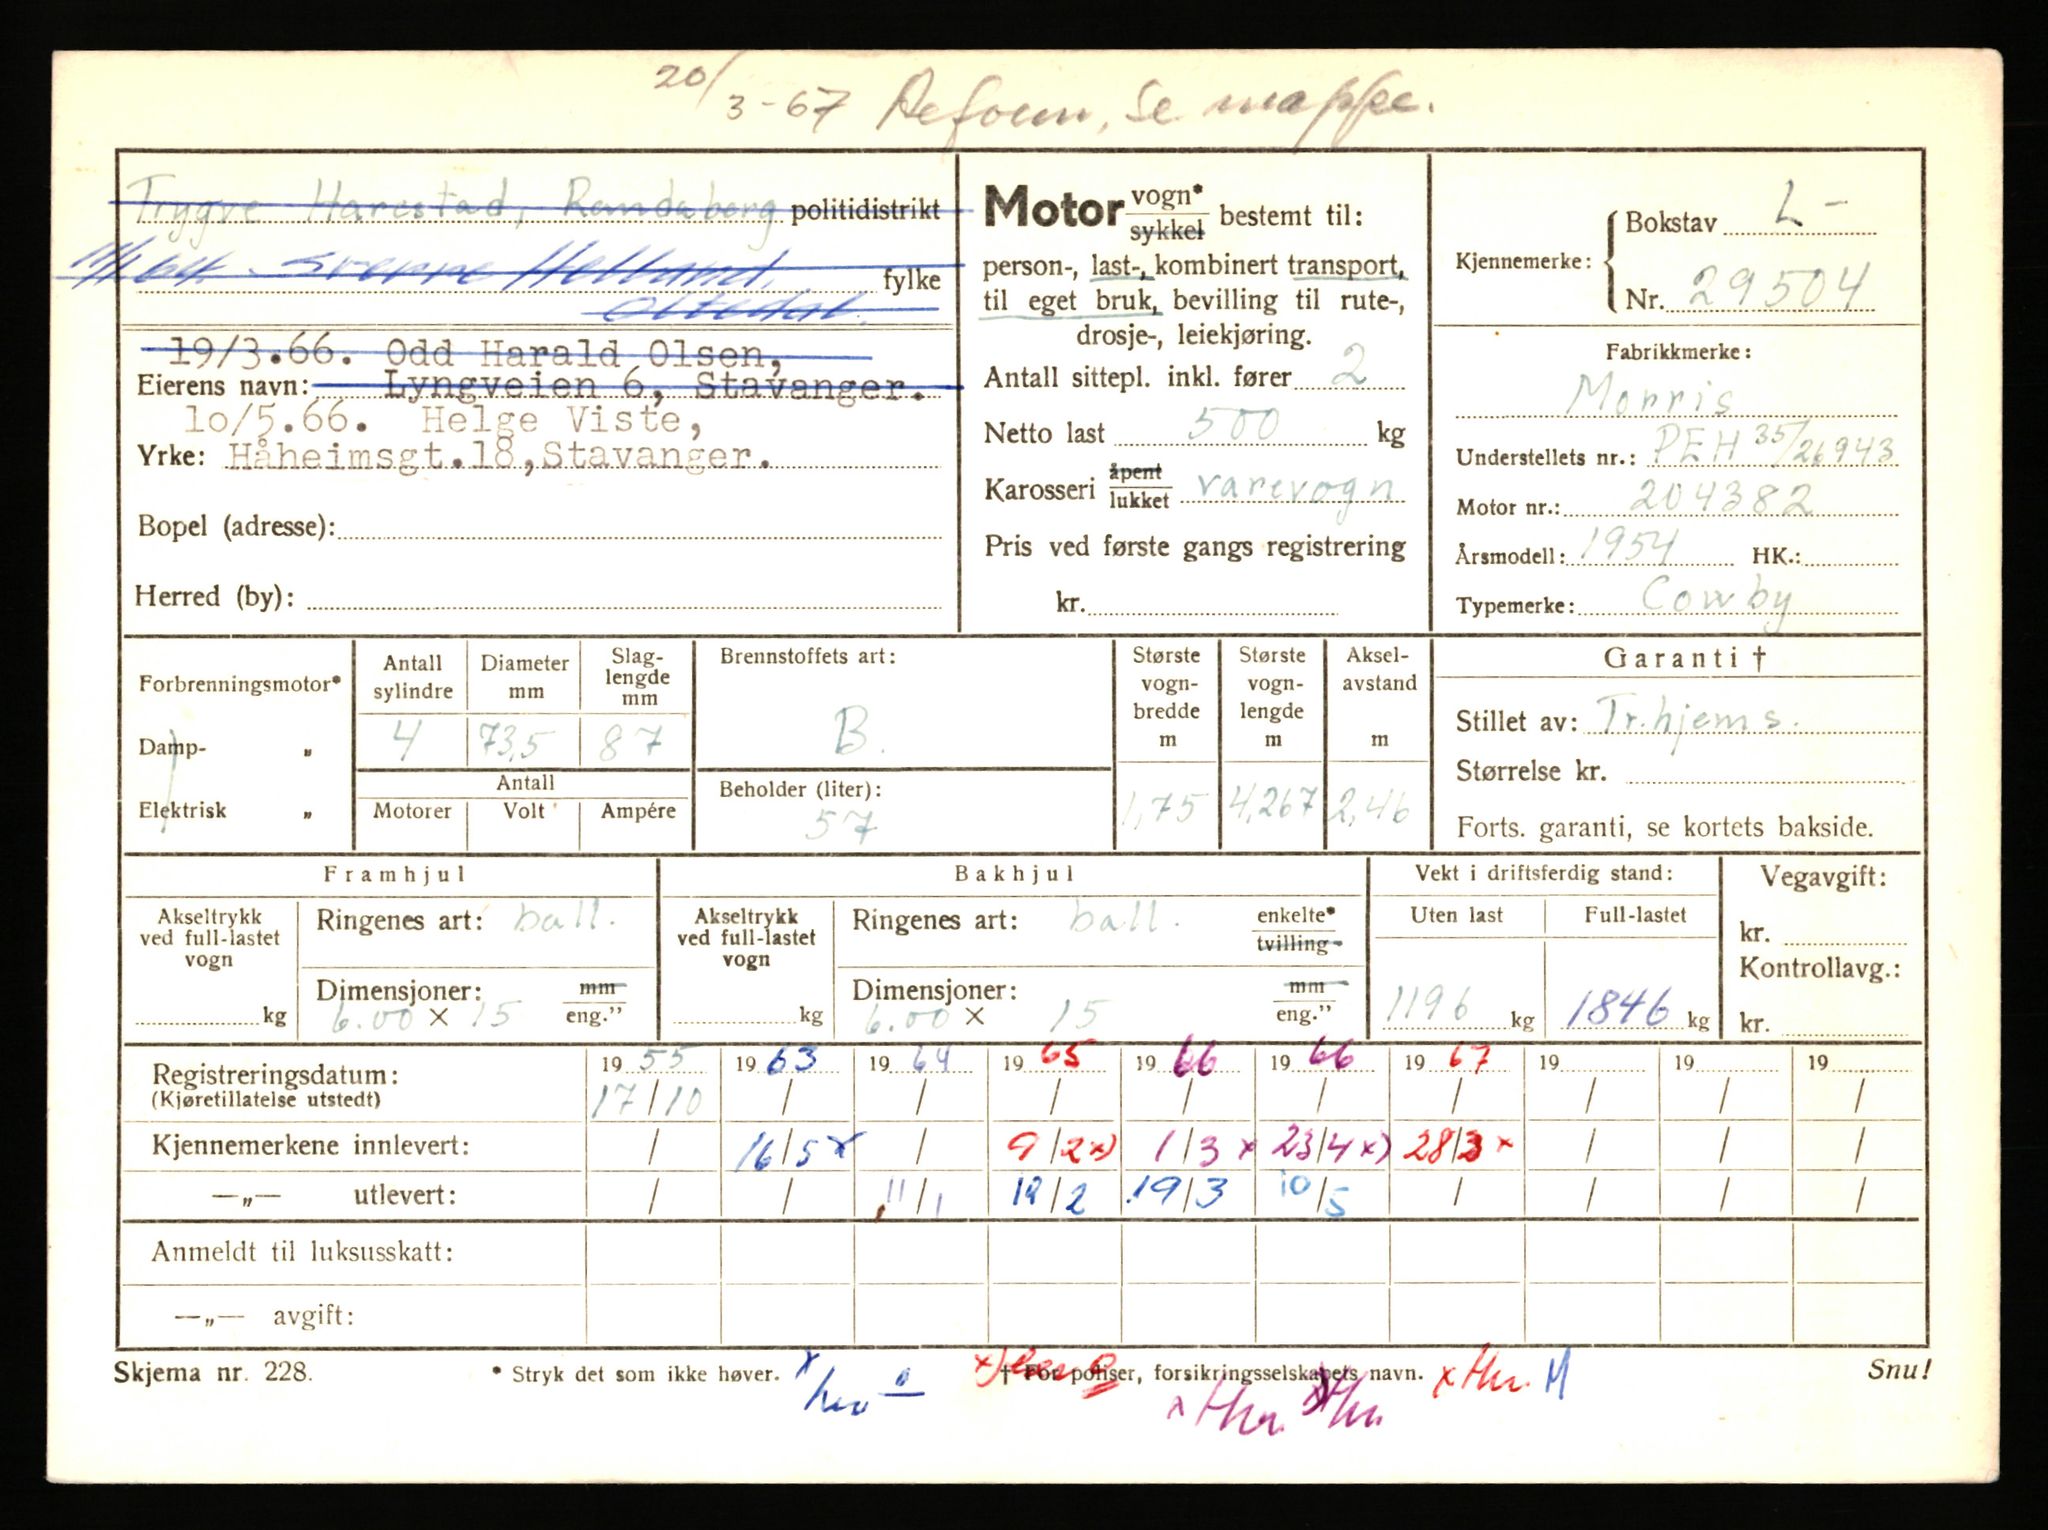 20/3-67 Reform, se mappe.
Trygve Harestad, Randaberg politidistrikt
11/1 64. Sverre Helland, fylke
Oltedal.
19/3.66. Odd Harald Olsen,
Eierens navn: Lyngveien 6, Stavanger.
10/5.66. Helge Viste,
Yrke: Håheimsgt.18, Stavanger.
Bopel (adresse):
Herred (by):
Motor vogn* sykkel bestemt til:
person-, last-, kombinert transport,
til eget bruk, bevilling til rute-,
drosje-, leiekjøring.
Antall sittepl. inkl. fører 2
Netto last 500 kg
Karosseri åpent lukket varevogn
Pris ved første gangs registrering
kr.
Kjennemerke: Bokstav L-
Nr. 29504
Fabrikkmerke:
Morris
Understellets nr.: PEH 35/26943
Motor nr.: 204382
Årsmodell: 1954 HK.:
Typemerke: Cowby
Forbrenningsmotor*
Damp- „
Elektrisk „
Antall sylindre 4
Diameter mm 73,5
Slaglengde mm 87
Antall
Motorer Volt Ampére
Brennstoffets art:
B.
Beholder (liter):
57
Største vognbredde m 1,75
Største vognlengde m 4,267
Akselavstand m 2,46
Garanti †
Stillet av: Tr.hjems.
Størrelse kr.
Forts. garanti, se kortets bakside.
Framhjul
Akseltrykk ved full-lastet vogn kg
Ringenes art: ball.
Dimensjoner: mm
6.00 × 15 eng."
Bakhjul
Akseltrykk ved full-lastet vogn kg
Ringenes art: ball. enkelte* tvilling-
Dimensjoner: mm
6.00 × 15 eng."
Vekt i driftsferdig stand:
Uten last Full-lastet
1196 kg 1846 kg
Vegavgift:
kr.
Kontrollavg.:
kr.
Registreringsdatum: 19 55 19 63 19 64 19 65 19 66 19 66 19 67 19 19 19
(Kjøretillatelse utstedt) 17/10 / / / / / / / / /
Kjennemerkene innlevert: / 16/5 x / 9/2 x) 1/3 x 23/4 x) 28/3 x / / /
—„— utlevert: / / 11/1 12/2 19/3 10/5 / / / /
Anmeldt til luksusskatt:
—„— avgift:
Skjema nr. 228. * Stryk det som ikke høver. † For poliser, forsikringsselskapets navn. Snu!